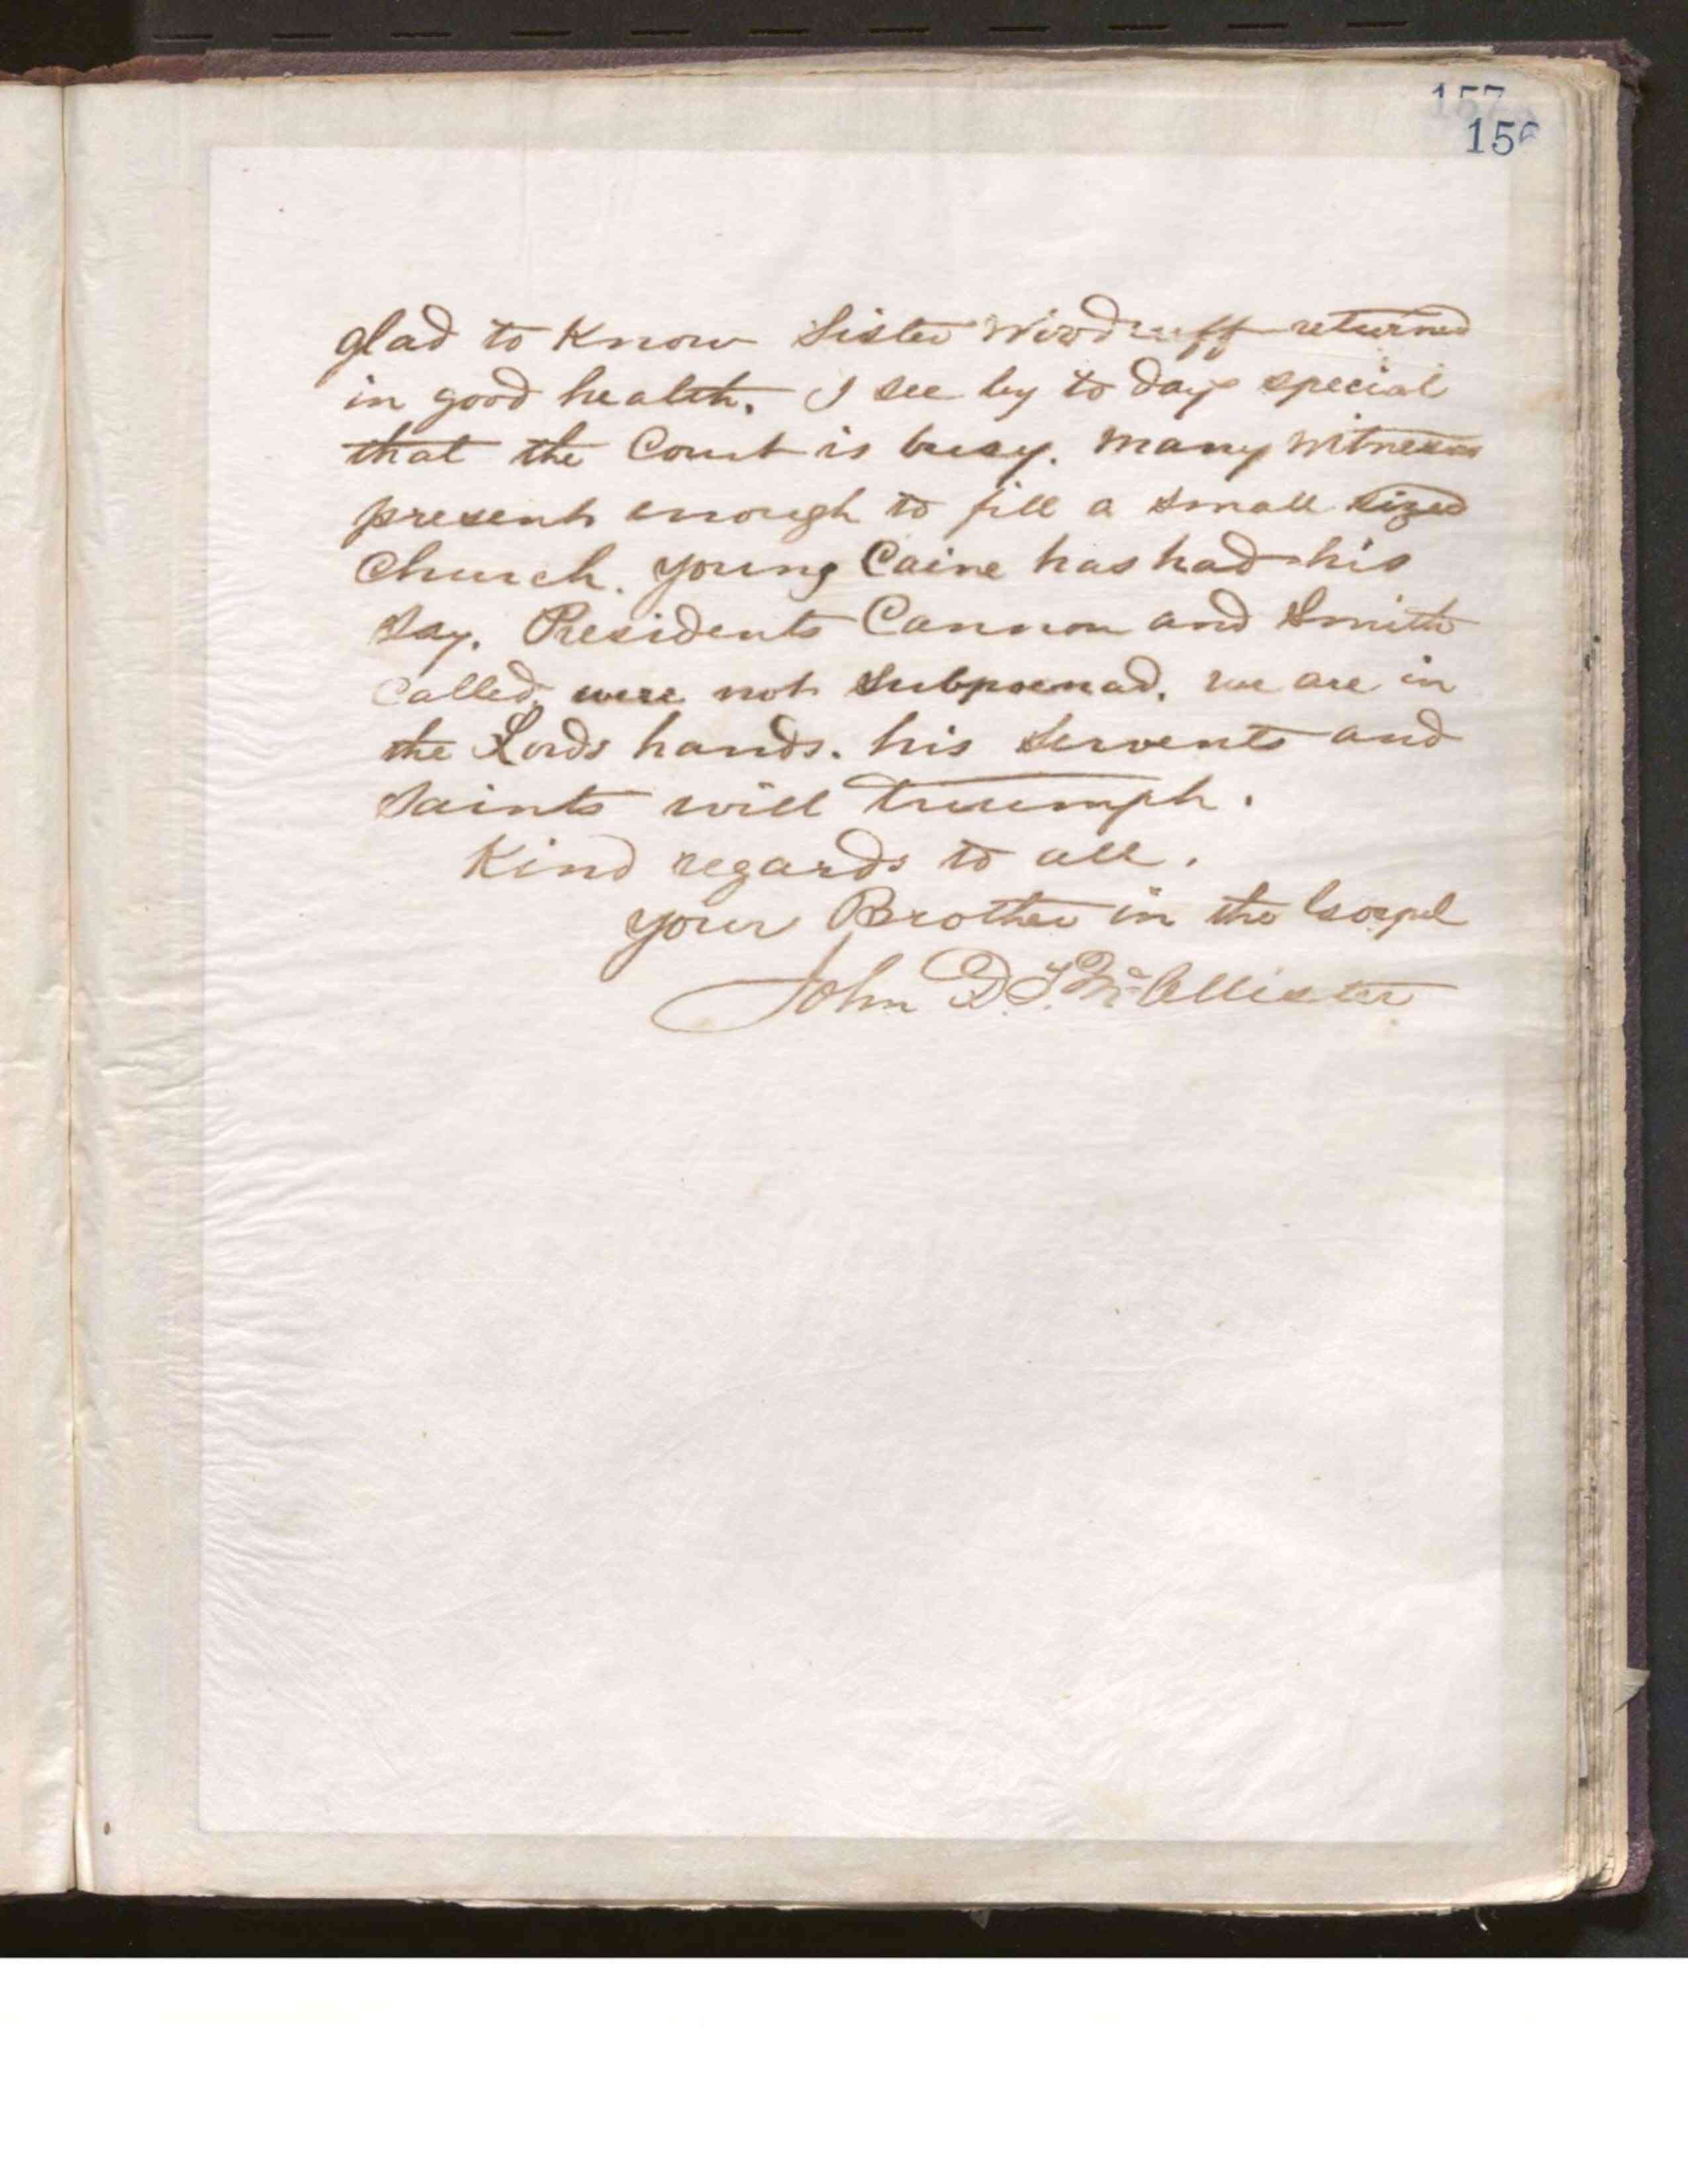 157
156
glad to Know Sister Woodruff returned
in good health. I see by to days special
that the Court is busy. Many Witnesses
present enough to fill a small sized
Church. Young Caine has had his
say. Presidents Cannon and Smith
Called, were not Subpoenad. we are in
the Lords hands. his Servents and
Saints will truumph.
Kind regards to all.
Your Brother in the Gospel
John D. T. McAllister